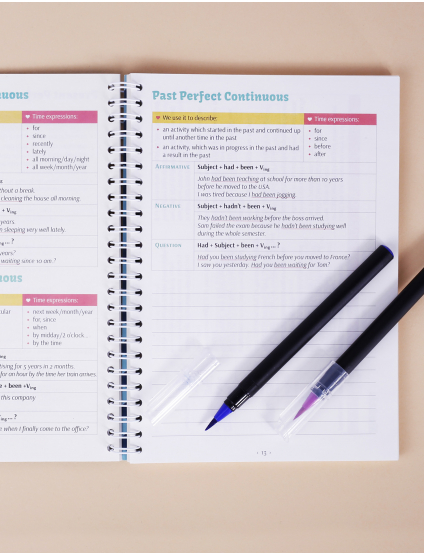 uous
♥ Time expressions:
• for
• since
• recently
• lately
• all morning/day/night
• all week/month/year
without a break.
cleaning the house all morning.
+ Ving
years.
sleeping very well lately.
ing ... ?
years?
waiting since 10 am?
uous
♥ Time expressions:
• next week/month/year
• for, since
• when
• by midday/2 o'clock.
• by the time
ing
for 5 years in 2 months
for an hour by the time her train arrives.
e + been +Ving
this company
ing ... ?
when I finally come to the office?
Past Perfect Continuous
♥ We use it to describe:
• an activity which started in the past and continued up
until another time in the past
• an activity, which was in progress in the past and had
a result in the past
♥ Time expressions:
• for
• since
• before
• after
Affirmative Subject + had + been + Ving
John had been teaching at school for more than 10 years
before he moved to the USA.
I was tired because I had been jogging.
Negative Subject + hadn't + been + Ving
They hadn't been working before the boss arrived.
Sam failed the exam because he hadn't been studying well
during the whole semester.
Question Had + Subject + been + Ving ... ?
Had you been studying French before you moved to France?
I saw you yesterday. Had you been waiting for Tom?
• 13 •